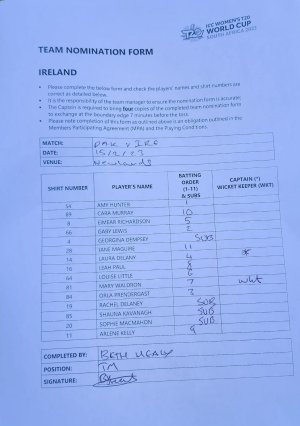 ICC WOMEN'S T20
WORLD CUP
SOUTH AFRICA 2023
TEAM NOMINATION FORM
IRELAND
• Please complete the below form and check the players' names and shirt numbers are
correct as detailed below.
• It is the responsibility of the team manager to ensure the nomination form is accurate.
• The Captain is required to bring four copies of the completed team nomination form
to exchange at the boundary edge 7 minutes before the toss.
• Please note completion of this form as outlined above is an obligation outlined in the
Members Participating Agreement (MPA) and the Playing Conditions.
MATCH: PAK v IRE
DATE: 15/2/23
VENUE: Newlands
SHIRT NUMBER PLAYER'S NAME BATTING ORDER (1-11) & SUBS CAPTAIN (*) WICKET KEEPER (WKT)
54 AMY HUNTER 1
69 CARA MURRAY 10
8 EIMEAR RICHARDSON 5
66 GABY LEWIS 2
4 GEORGINA DEMPSEY SUB
28 JANE MAGUIRE 11
14 LAURA DELANY 4 *
16 LEAH PAUL 8
64 LOUISE LITTLE 6
81 MARY WALDRON 7 wkt
84 ORLA PRENDERGAST 3
19 RACHEL DELANEY SUB
85 SHAUNA KAVANAGH SUB
20 SOPHIE MACMAHON SUB
11 ARLENE KELLY 9
COMPLETED BY: BETH
POSITION: TM
SIGNATURE: